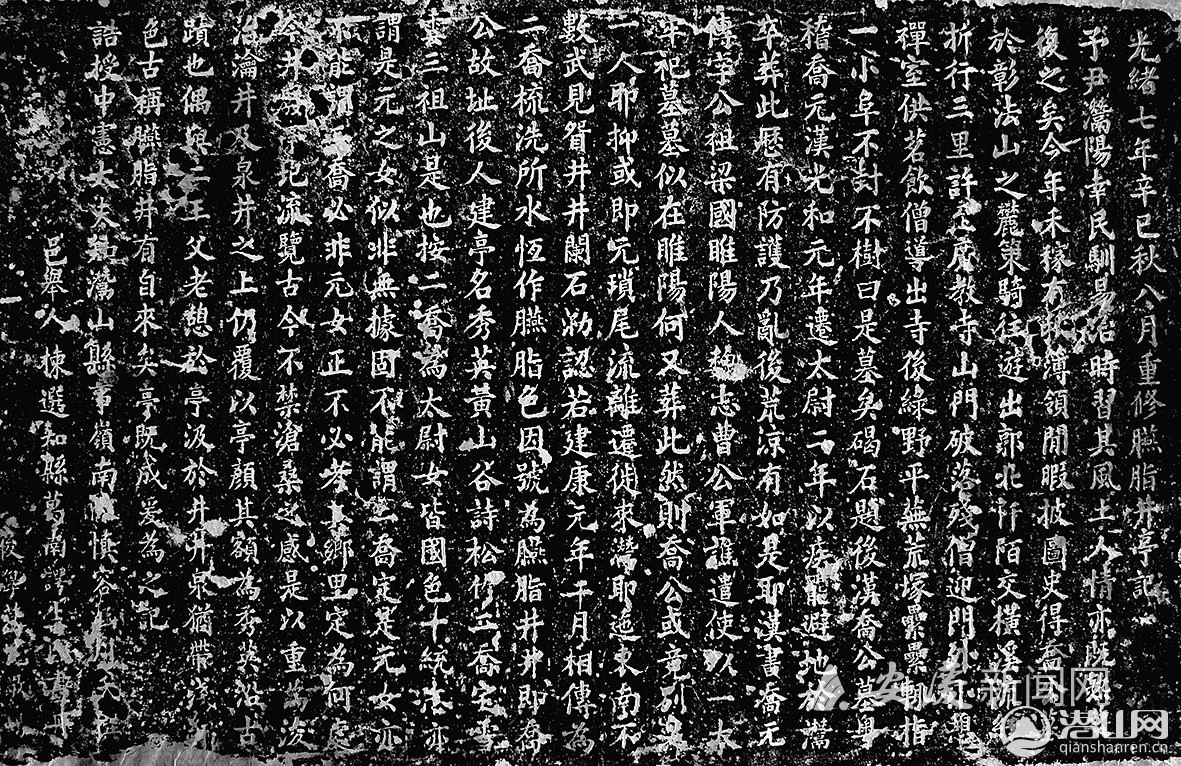 光緒七年辛巳秋八月重修臙脂井亭記
予尹灊陽幸民馴易治時習其風土人情亦既
復之矣今年未稼有秋薄領閒暇披圖史得喬公
於彰法山之麓策騎往遊出郭北阡陌交橫溪流
折行三里許至廣教寺山門破落殘僧迎門外小憩
禪室供茗飲僧導出寺後綠野平蕪荒塚纍纍輒指
一小阜不封不樹曰是墓矣碣石題後漢喬公墓
稽喬元漢光和元年遷太尉二年以疾罷避地於灊
卒葬此歷有防護乃亂後荒涼有如是耶漢書喬元
傳喬公祖梁國睢陽人魏志曹公軍譙遣使以太
牢祀墓墓似在睢陽何又葬此然則喬公或竟別是
一人耶抑或即元瑣尾流離遷徙來灊耶迤東南不
數武見眢井井闌石泐認若建康元年十月相傳為
二喬梳洗所水恆作臙脂色因號為臙脂井井即喬
公故址後人建亭名秀英黃山谷詩松竹二喬宅雪
雲三祖山是也按二喬為太尉女皆國色十統志亦
謂是元之女似非無據固不能謂二喬定是元女亦
不能謂二喬必非元女正不必考鄉里定為何處
今井亭已圮流覽古今不禁滄桑之感是以重為浚
治瀹井及泉井之上仍覆以亭顏其額為秀英沿古
蹟也偶與二三父老憩於亭汲於井井泉猶帶
色古稱臙脂井有自來矣亭既成爰為之記
誥授中憲大夫知灊山縣事嶺南
邑舉人棟選知縣葛南